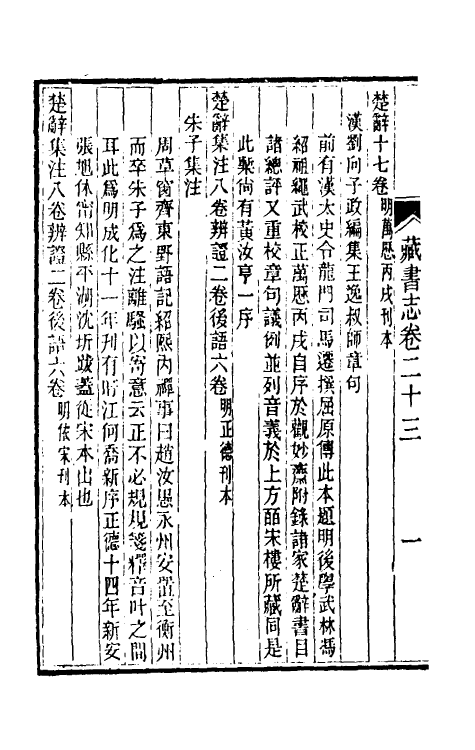 藏書志卷二十三
一
楚辭十七卷明萬厯丙戌刊本
漢劉向子政編集王逸叔師章句
前有漢太史令龍門司馬遷撰屈原傳此本題明後學武林馮
紹祖繩武校正萬厯丙戌自序於觀妙齋附錄諸家楚辭書目
諸總評又重校章句議例並列音義於上方皕宋樓所藏同是
此槧尙有黃汝亨一序
楚辭集注八卷辨證二卷後語六卷明正德刊本
朱子集注
周草窗齊東野語記紹熙內禪事曰趙汝愚永州安置至衡州
而卒朱子爲之注離騷以寄意云正不必規規箋釋音叶之間
耳此爲明成化十一年刊有盱江何喬新序正德十四年新安
張旭休甯知縣平湖沈圻跋蓋從宋本出也
楚辭集注八卷辨證二卷後語六卷明依宋刊本